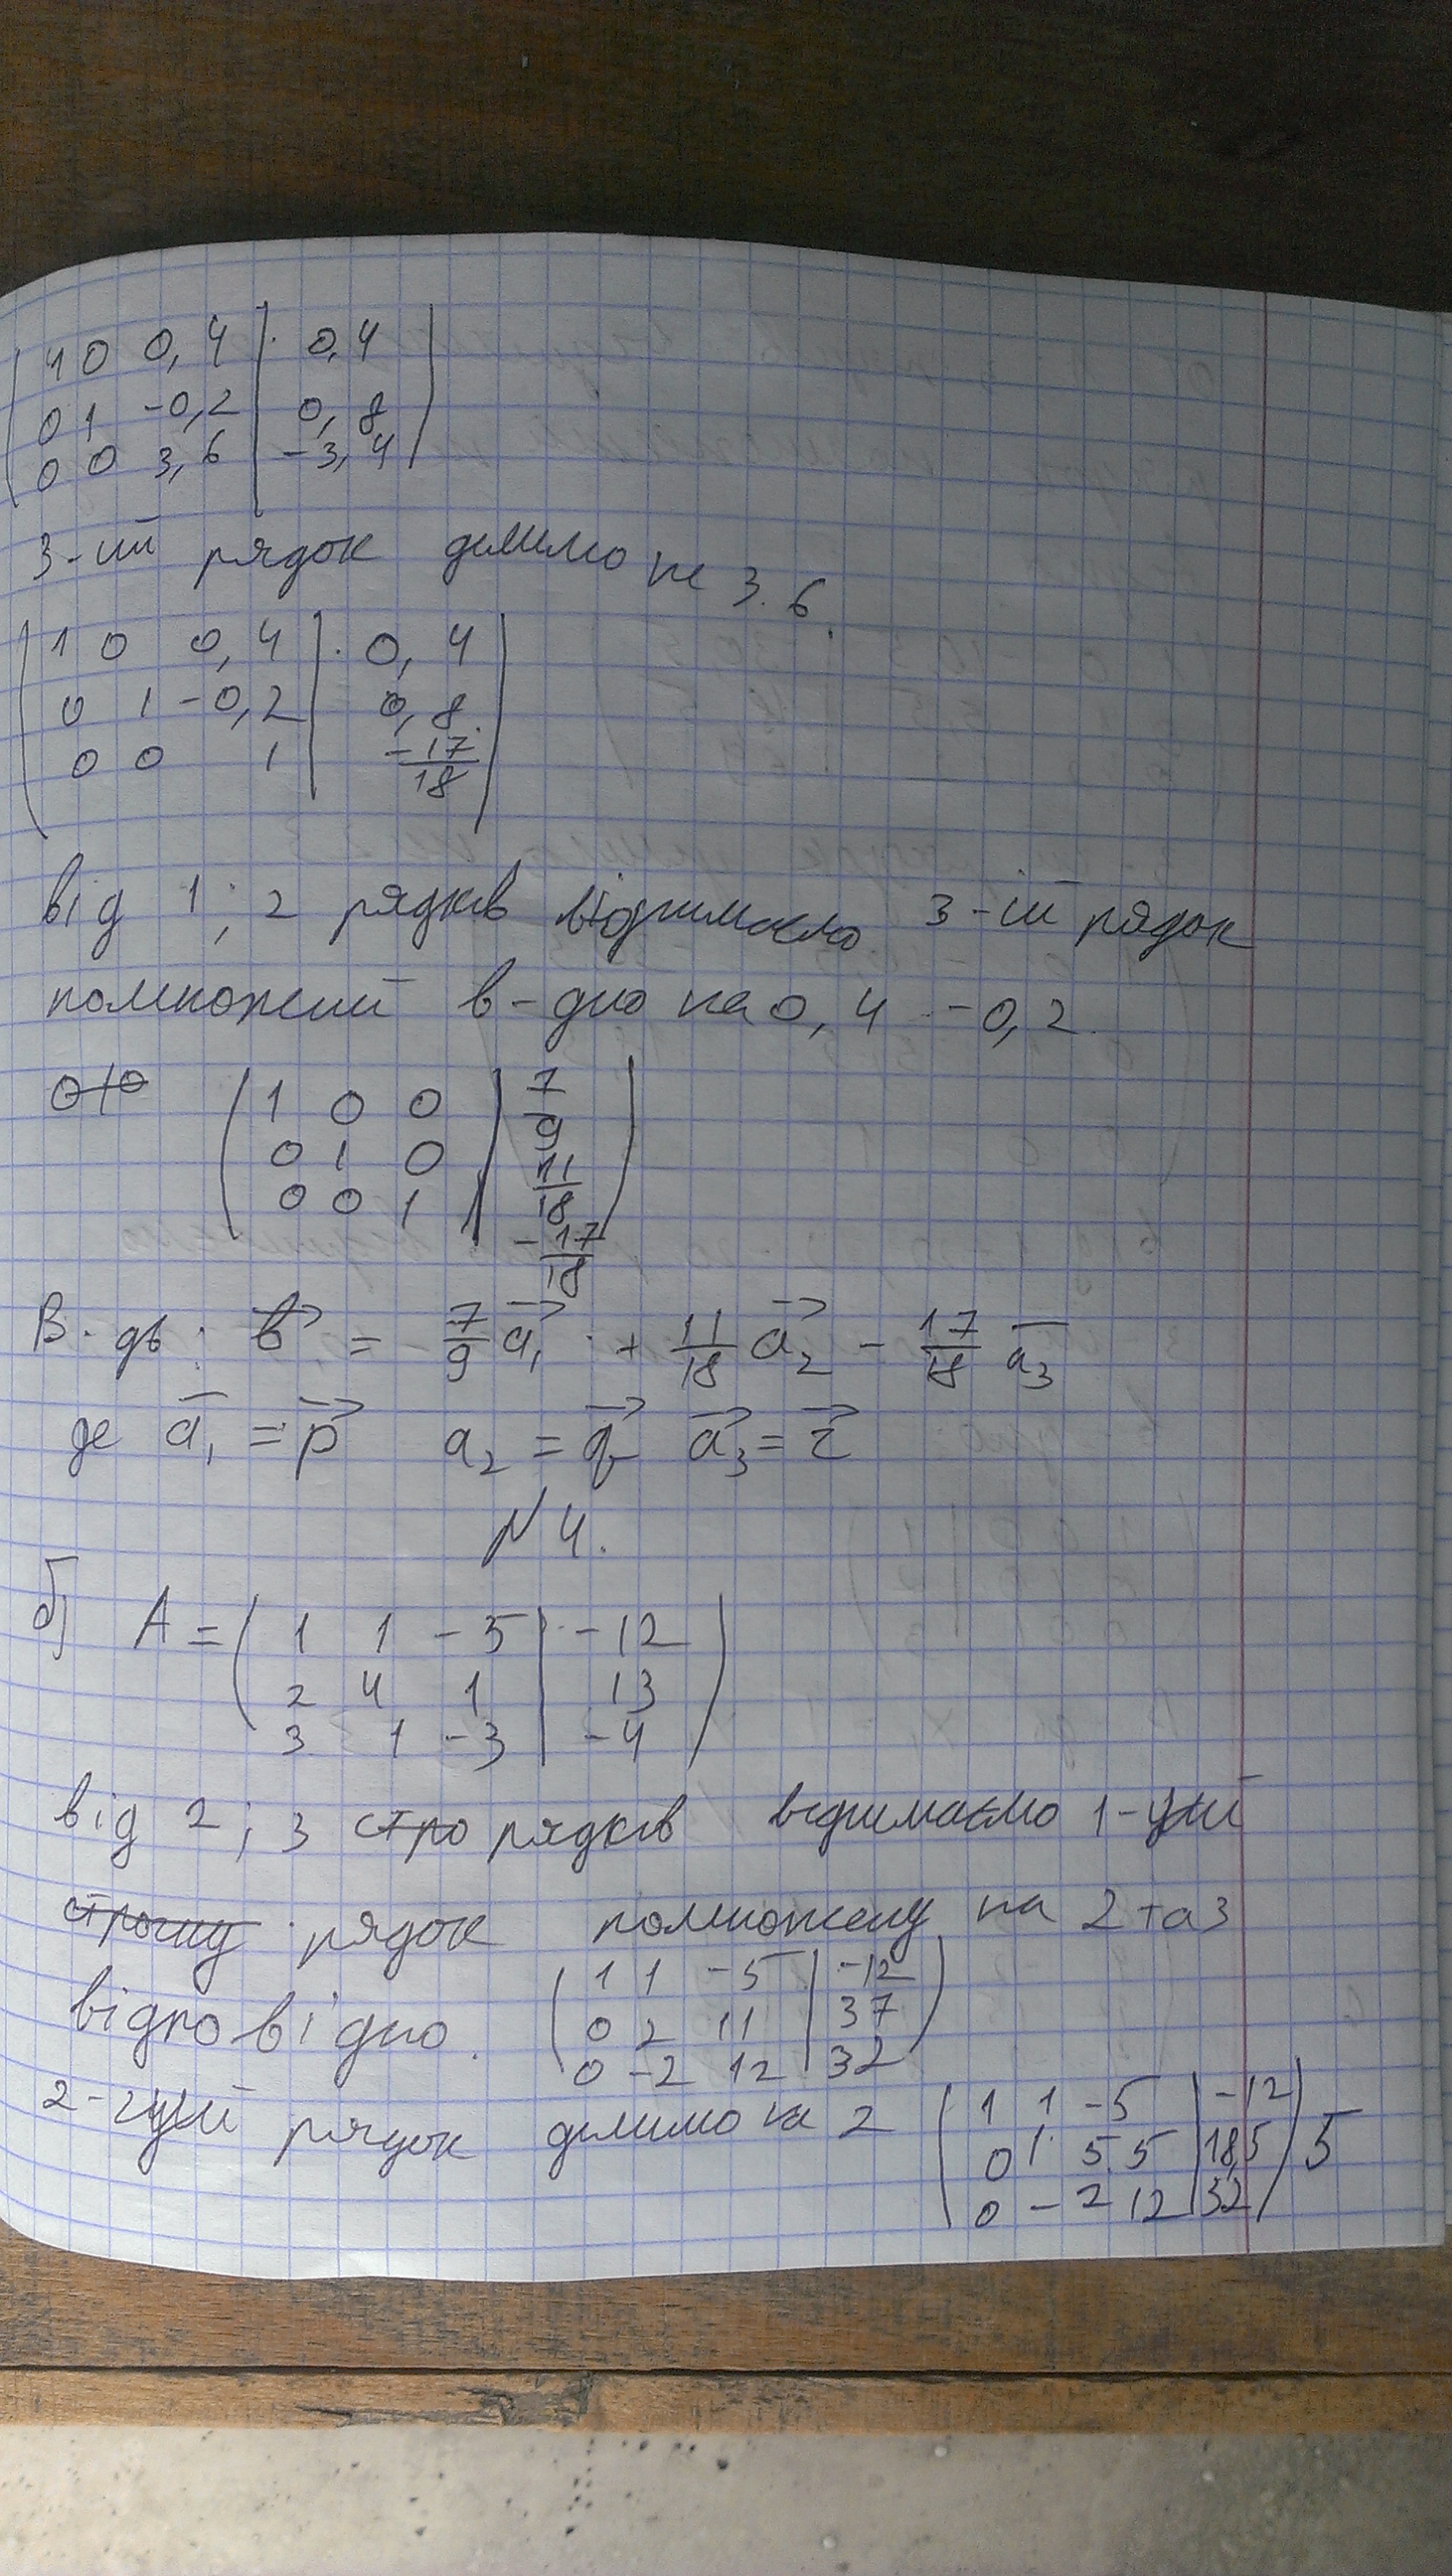 1 0 0,4 | 0,4
0 1 -0,2 | 0,8
0 0 3,6 | -3,4
3-ий рядок делимо на 3.6.
1 0 0,4 | 0,4
0 1 -0,2 | 0,8
0 0 1 | -17/18
від 1; 2 рядків віднимаємо 3-ій рядок
помножений в-дно на 0,4 -0,2.
1 0 0 | 7/9
0 1 0 | 11/18
0 0 1 | -17/18
В-дь: b = 7/9 a1 + 11/18 a2 - 17/18 a3
де a1 = p a2 = q a3 = r
N 4.
б) A = ( 1 1 -5 | -12 )
2 4 1 | 13
3 1 -3 | -4
від 2; 3 стро рядків віднимаємо 1-ший
строчку рядок помножену на 2 та 3
відповідно. ( 1 1 -5 | -12 )
0 2 11 | 37
0 -2 12 | 32
2-гий рядок делимо на 2 ( 1 1 -5 | -12 )
0 1 5.5 | 18,5 5
0 -2 12 | 32